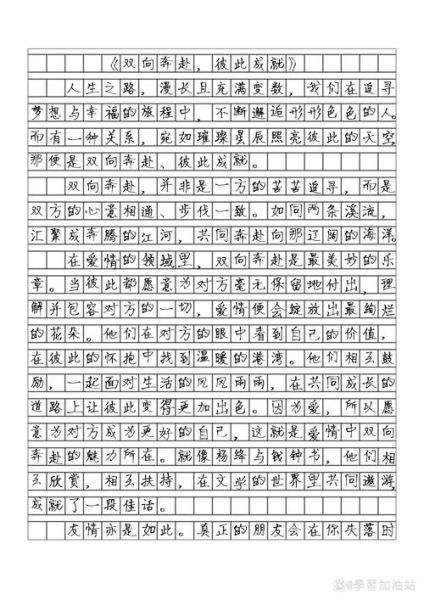 《双向奔赴，彼此成就》
人生之路，漫长且充满变数，我们在追寻
梦想与幸福的旅程中，不断邂逅形形色色的人。
而有一种关系，宛如璀璨星辰照亮彼此的天空，
那便是双向奔赴、彼此成就。
双向奔赴，并非是一方的苦苦追寻，而是
双方的心意相通、步伐一致。如同两条溪流，
汇聚成奔腾的江河，共同奔赴向那辽阔的海洋。
在爱情的领域里，双向奔赴是最美妙的乐
章。当彼此都愿意为对方毫无保留地付出，理
解并包容对方的一切，爱情便会绽放出最绚烂
的花朵。他们在对方的眼中看到自己的价值，
在彼此的怀抱中找到温暖的港湾。他们相互鼓
励，一起面对生活的风风雨雨，在共同成长的
道路上让彼此变得更加出色。因为爱，所以愿
意为对方成为更好的自己，这就是爱情中双向
奔赴的魅力所在。就像杨绛与钱钟书，他们相
互欣赏，相互扶持，在文学的世界里共同遨游，
成就了一段佳话。
友情亦是如此。真正的朋友会在你失落时
學習加油站